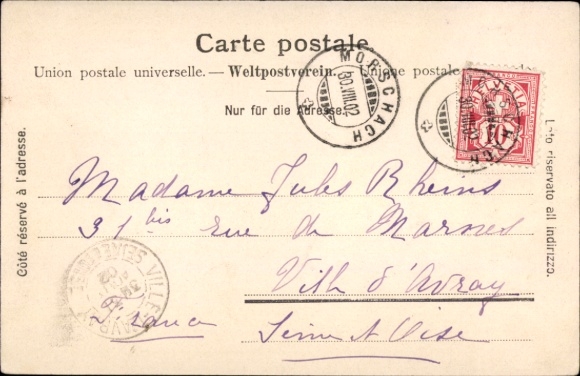 Carte postale.
Union postale universelle. — Weltpostverein. — Unione postale
Nur für die Adresse.
MORSCHACH
30.VIII.02
HELVETIA
10
Côté réservé à l'adresse.
Lato riservato all indirizzo.
Madame Jules Rheims
31 bis rue de Marnes
Ville d'Avray
France
Seine et Oise
VILLE D'AVRAY
SEINE ET OISE
02